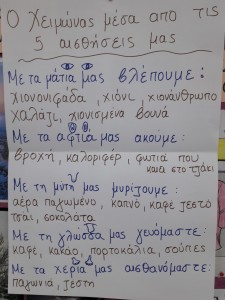 Ο Χειμώνας μέσα από τις
5 αισθήσεις μας
Με τα μάτια μας βλέπουμε:
χιονονιφάδα, χιόνι, χιονάνθρωπο
χαλάζι, χιονισμένα βουνά
Με τα αφτιά μας ακούμε:
βροχή, καλοριφέρ, φωτιά που
καίει στο τζάκι
Με τη μύτη μας μυρίζουμε:
αέρα παγωμένο, καπνό, καφέ ζεστό
τσάι, σοκολάτα
Με τη γλώσσα μας γευόμαστε:
καφέ, κακάο, πορτοκάλια, σούπες
Με τα χέρια μας αισθανόμαστε:
παγωνιά, ζέστη